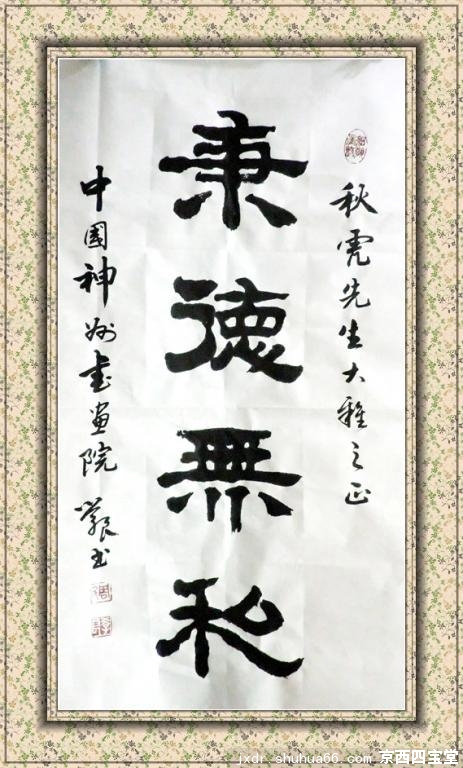 秋虎先生大雅之正
秉德無私
中國神州书画院
书
jxdr.shuhua66.com 京西四宝堂